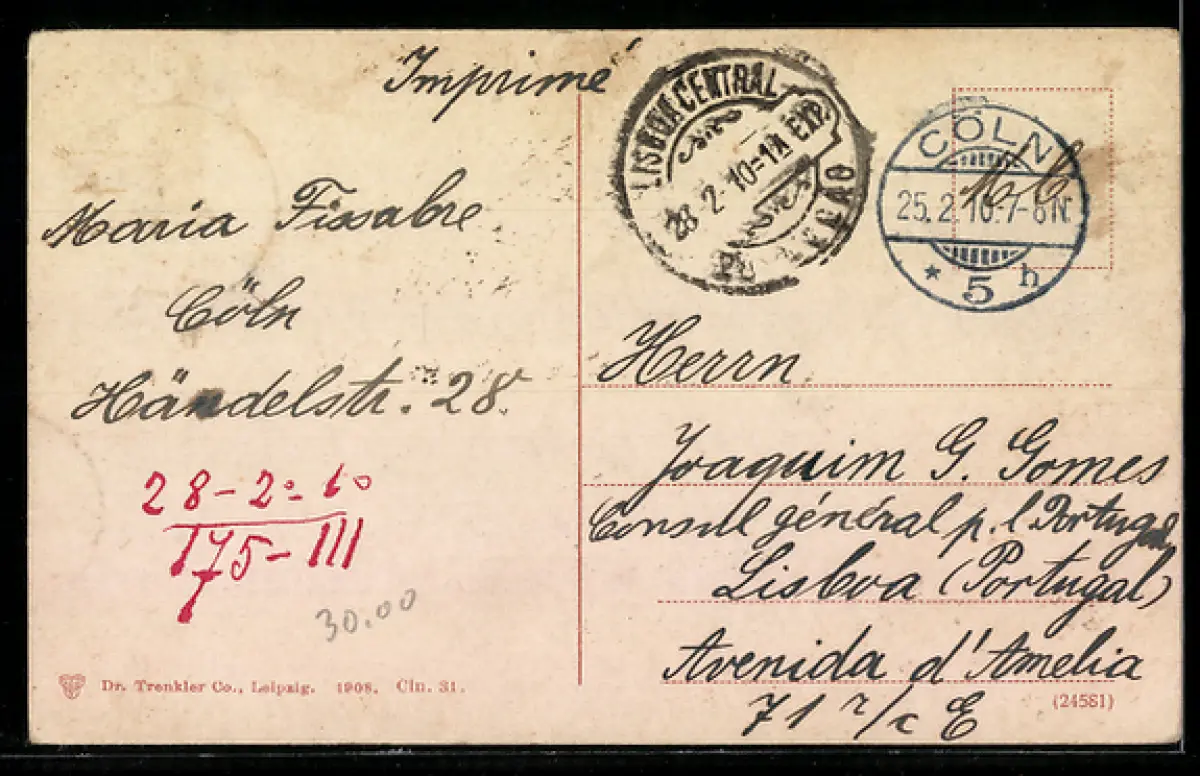 Imprimé
LISBOA CENTRAL
28·2·10=1M EXP.
CÖLN
25.2.10.7-8N
* 5 h
Maria Fissabre
Cöln
Händelstr. 28.
28-2-10
175-III
30.00
Herrn
Joaquim G. Gomes
Consul général p. l Portugal
Lisboa (Portugal)
Avenida d'Amelia
71 r/c E
Dr. Trenkler Co., Leipzig. 1908. Cln. 31.
(24581)